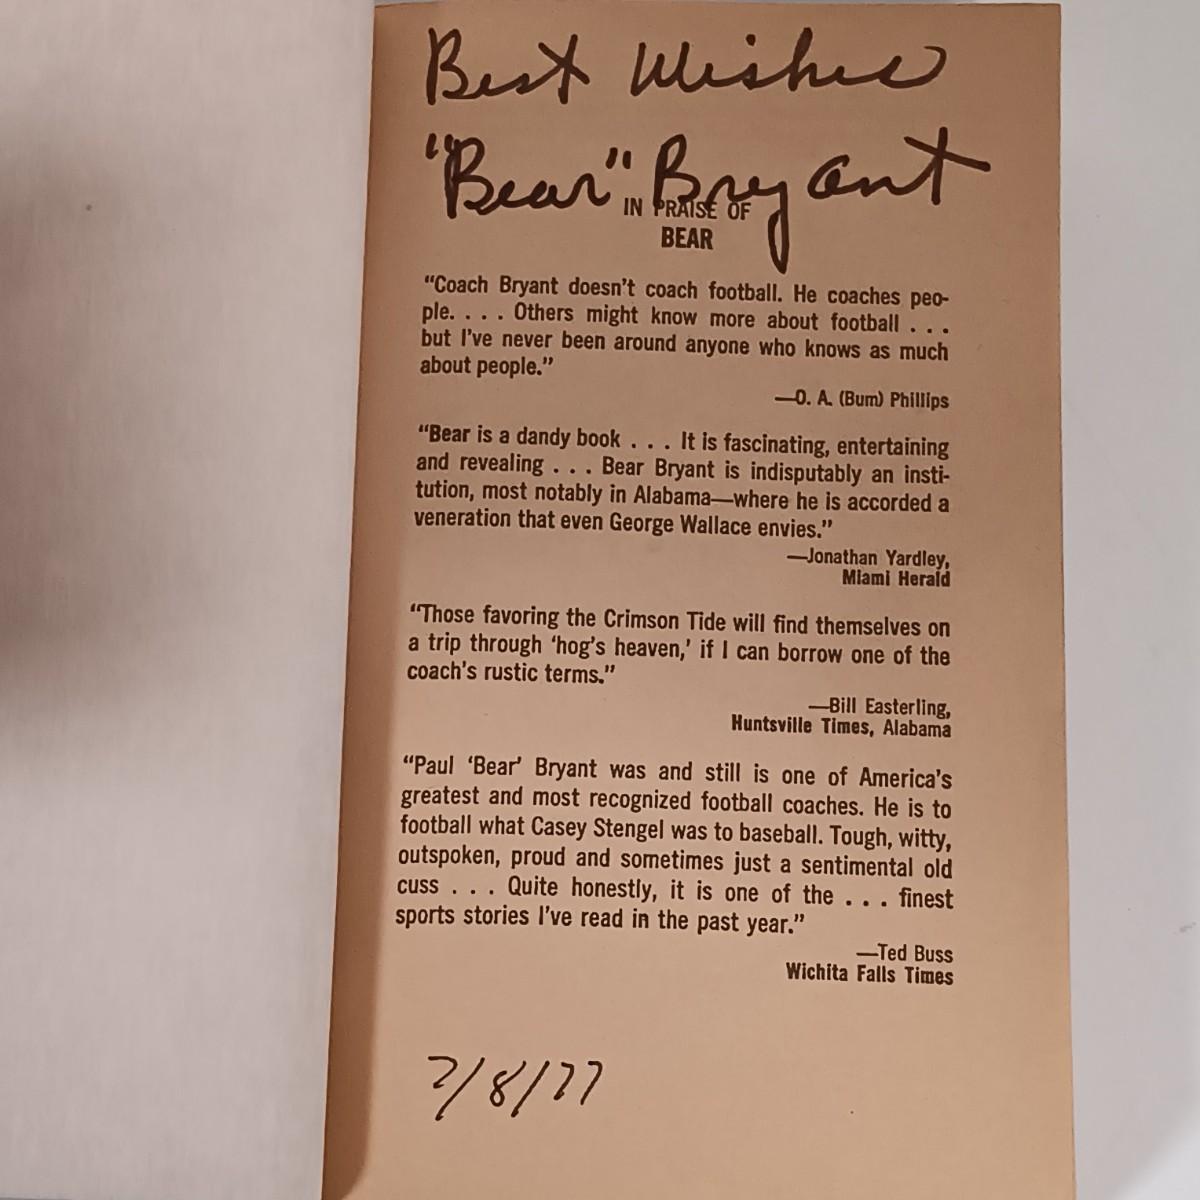 Best Wishes
"Bear" Bryant
IN PRAISE OF
BEAR
“Coach Bryant doesn't coach football. He coaches peo-
ple. . . . Others might know more about football . . .
but I've never been around anyone who knows as much
about people.”
—O. A. (Bum) Phillips
“Bear is a dandy book . . . It is fascinating, entertaining
and revealing . . . Bear Bryant is indisputably an insti-
tution, most notably in Alabama—where he is accorded a
veneration that even George Wallace envies.”
—Jonathan Yardley,
Miami Herald
“Those favoring the Crimson Tide will find themselves on
a trip through ‘hog's heaven,’ if I can borrow one of the
coach's rustic terms.”
—Bill Easterling,
Huntsville Times, Alabama
“Paul ‘Bear’ Bryant was and still is one of America's
greatest and most recognized football coaches. He is to
football what Casey Stengel was to baseball. Tough, witty,
outspoken, proud and sometimes just a sentimental old
cuss . . . Quite honestly, it is one of the . . . finest
sports stories I've read in the past year.”
—Ted Buss
Wichita Falls Times
7/8/77